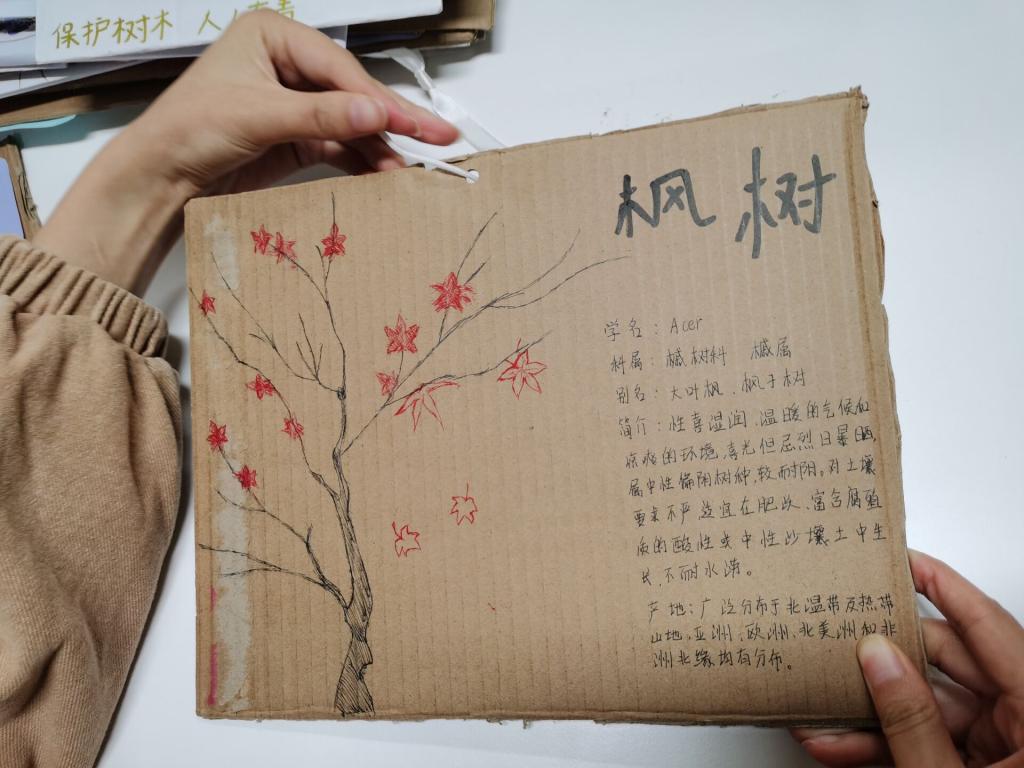 保护树木 人人有责
枫树
学名：Acer
科属：槭树科 槭属
别名：大叶枫、枫子树
简介：性喜湿润、温暖的气候和
凉爽的环境,喜光但忌烈日暴晒,
属中性偏阴树种,较耐阴。对土壤
要求不严 适宜在肥沃、富含腐殖
质的酸性或中性沙壤土中生
长,不耐水涝。
产地：广泛分布于北温带及热带
山地,亚洲、欧洲、北美洲和非
洲北缘均有分布。